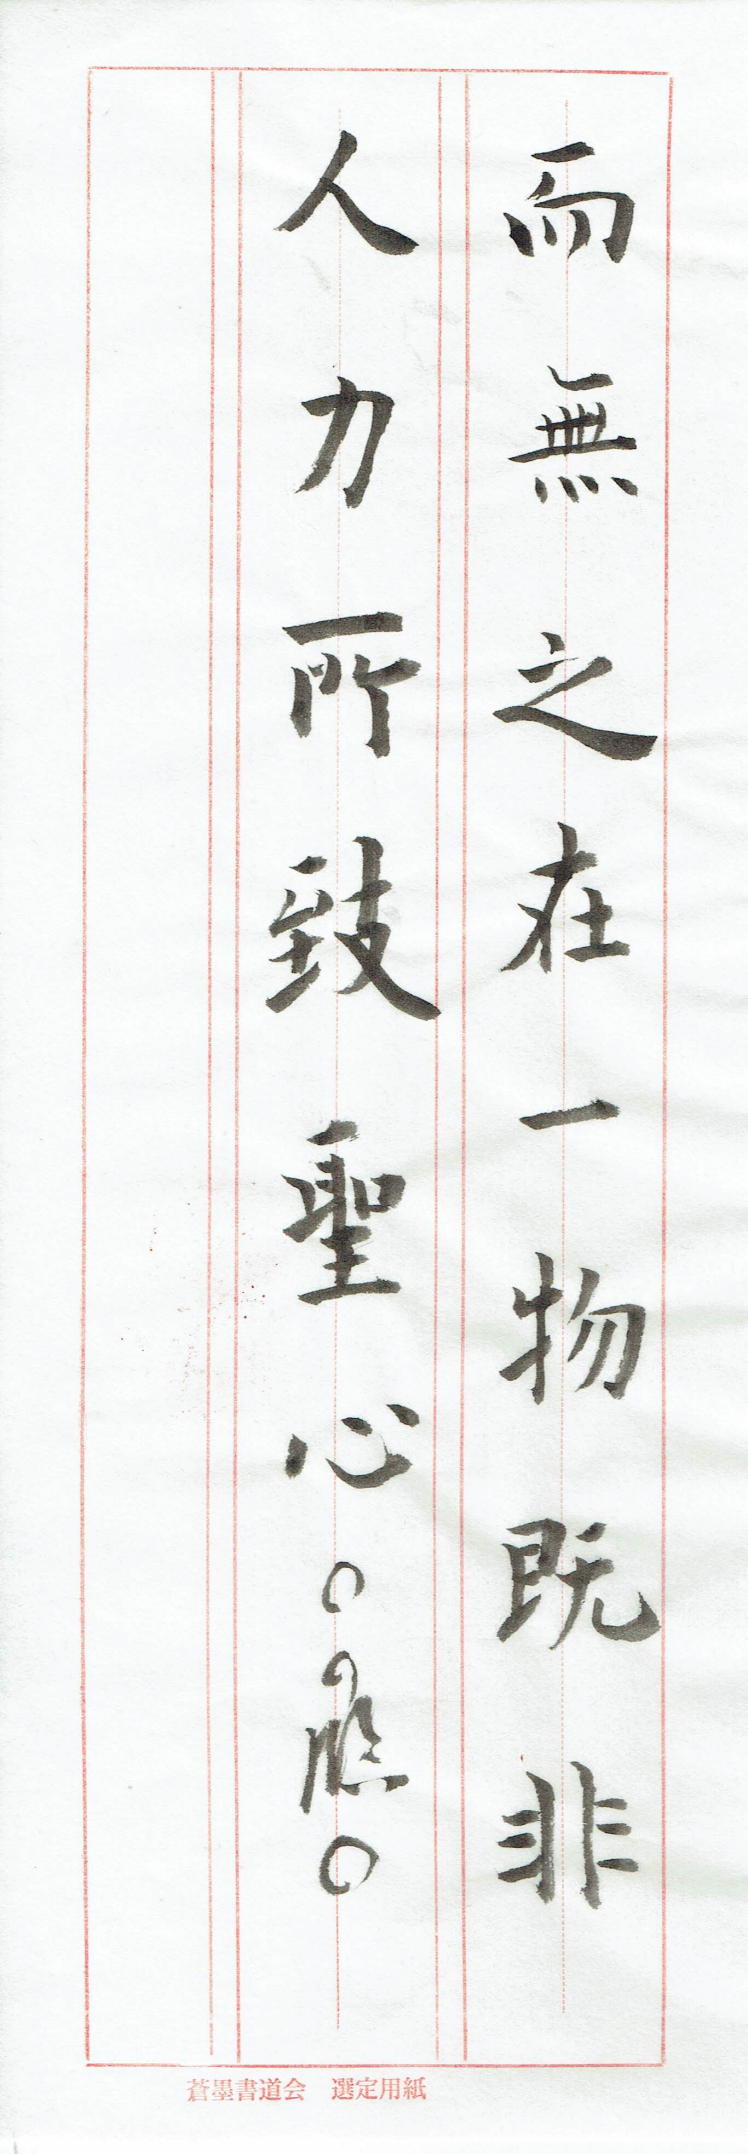 而無之在一物既非
人力所致聖心。
蒼墨書道会 選定用紙